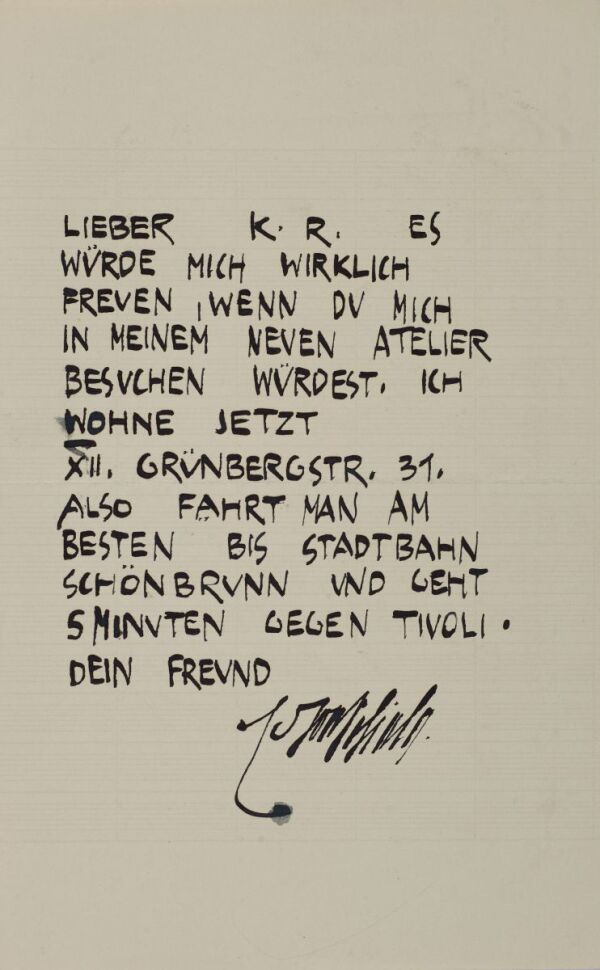 LIEBER K. R. ES
WÜRDE MICH WIRKLICH
FREVEN, WENN DV MICH
IN MEINEM NEVEN ATELIER
BESVCHEN WÜRDEST. ICH
WOHNE JETZT
XII. GRÜNBERGSTR. 31.
ALSO FÄHRT MAN AM
BESTEN BIS STADTBAHN
SCHÖNBRVNN VND GEHT
5 MINVTEN GEGEN TIVOLI.
DEIN FREVND